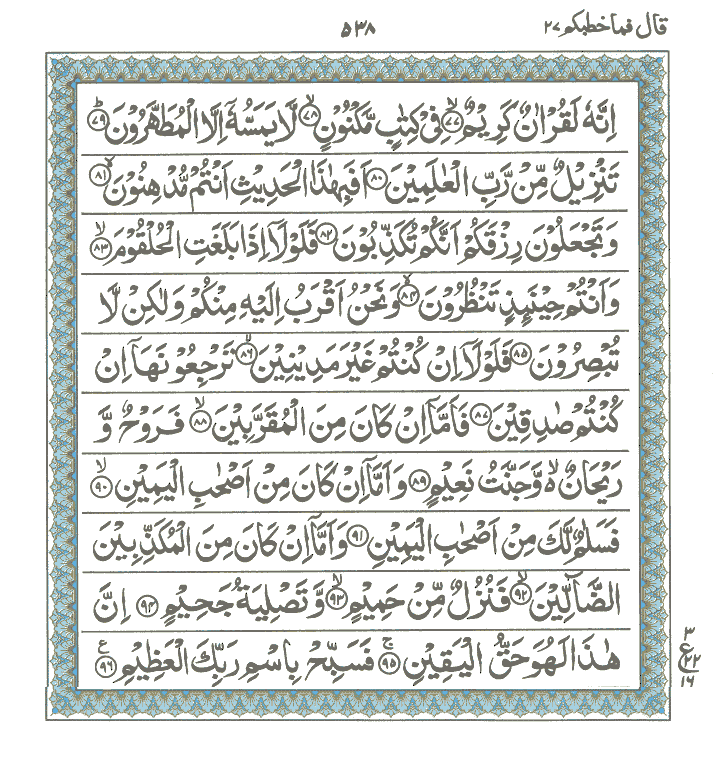 قال فما خطبكم ٢٧
٥٣٨
اِنَّهٗ لَقُرْاٰنٌ كَرِيْمٌ ۙ‏﴿٧٧﴾ فِىْ كِتٰبٍ مَّكْنُوْنٍ ۙ‏﴿٧٨﴾ لَّا يَمَسُّهٗۤ اِلَّا الْمُطَهَّرُوْنَ ؕ‏﴿٧٩﴾
تَنْزِيْلٌ مِّنْ رَّبِّ الْعٰلَمِيْنَ ﴿٨٠﴾ اَفَبِهٰذَا الْحَدِيْثِ اَنْتُمْ مُّدْهِنُوْنَ ۙ‏﴿٨١﴾
وَ تَجْعَلُوْنَ رِزْقَكُمْ اَنَّكُمْ تُكَذِّبُوْنَ ﴿٨٢﴾ فَلَوْلَاۤ اِذَا بَلَغَتِ الْحُلْقُوْمَ ۙ‏﴿٨٣﴾
وَاَنْتُمْ حِيْنَئِذٍ تَنْظُرُوْنَ ۙ‏﴿٨٤﴾ وَنَحْنُ اَقْرَبُ اِلَيْهِ مِنْكُمْ وَلٰكِنْ لَّا
تُبْصِرُوْنَ ﴿٨٥﴾ فَلَوْلَاۤ اِنْ كُنْتُمْ غَيْرَ مَدِيْنِيْنَ ۙ‏﴿٨٦﴾ تَرْجِعُوْنَهَاۤ اِنْ
كُنْتُمْ صٰدِقِيْنَ ﴿٨٧﴾ فَاَمَّاۤ اِنْ كَانَ مِنَ الْمُقَرَّبِيْنَ ۙ‏﴿٨٨﴾ فَرَوْحٌ وَّ
رَيْحَانٌ ۙ۬ وَّجَنَّتُ نَعِيْمٍ ﴿٨٩﴾ وَ اَمَّاۤ اِنْ كَانَ مِنْ اَصْحٰبِ الْيَمِيْنِ ۙ‏﴿٩٠﴾
فَسَلٰمٌ لَّكَ مِنْ اَصْحٰبِ الْيَمِيْنِ ﴿٩١﴾ وَاَمَّاۤ اِنْ كَانَ مِنَ الْمُكَذِّبِيْنَ
الضَّآلِّيْنَ ۙ‏﴿٩٢﴾ فَنُزُلٌ مِّنْ حَمِيْمٍ ۙ‏﴿٩٣﴾ وَّ تَصْلِيَةُ جَحِيْمٍ ﴿٩٤﴾ اِنَّ
هٰذَا لَهُوَ حَقُّ الْيَقِيْنِ ۚ‏﴿٩٥﴾ فَسَبِّحْ بِاسْمِ رَبِّكَ الْعَظِيْمِ ﴿٩٦﴾ ع
٣
ع
٢٢
١٦